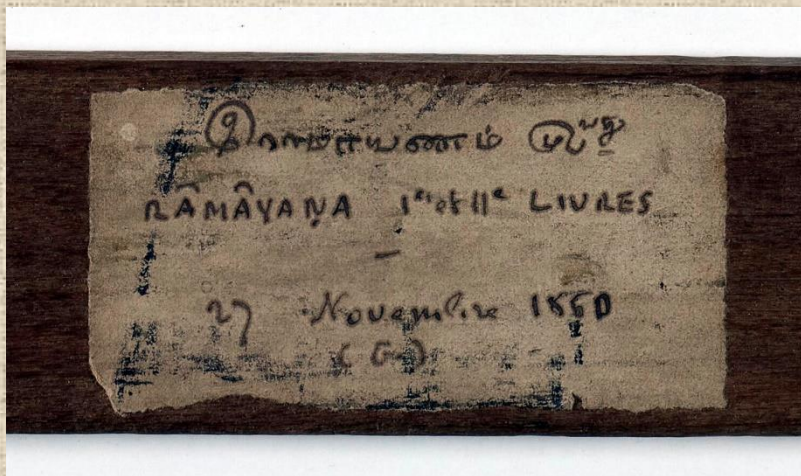 இராமாயணம்
RÂMÂYAṆA Iᵉʳ et IIᵉ LIVRES
—
27 Novembre 1860